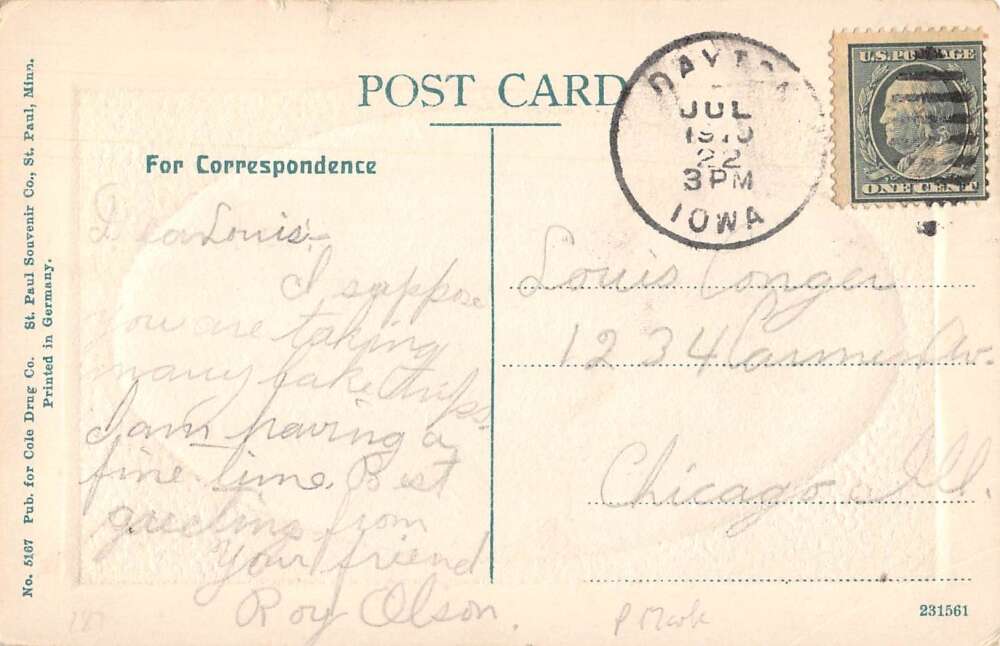 No. 5167 Pub. for Cole Drug Co. St. Paul Souvenir Co., St. Paul, Minn.
Printed in Germany.
POST CARD
For Correspondence
DAYTON
JUL
1910
22
3PM
IOWA
U.S. POSTAGE
ONE CENT
Dear Louis-
I suppose
you are taking
many lake trips.
I am having a
fine time. Best
greeting from
Your friend
Roy Olson.
Louis Conger
1234 Carmen Av.
Chicago Ill.
231561